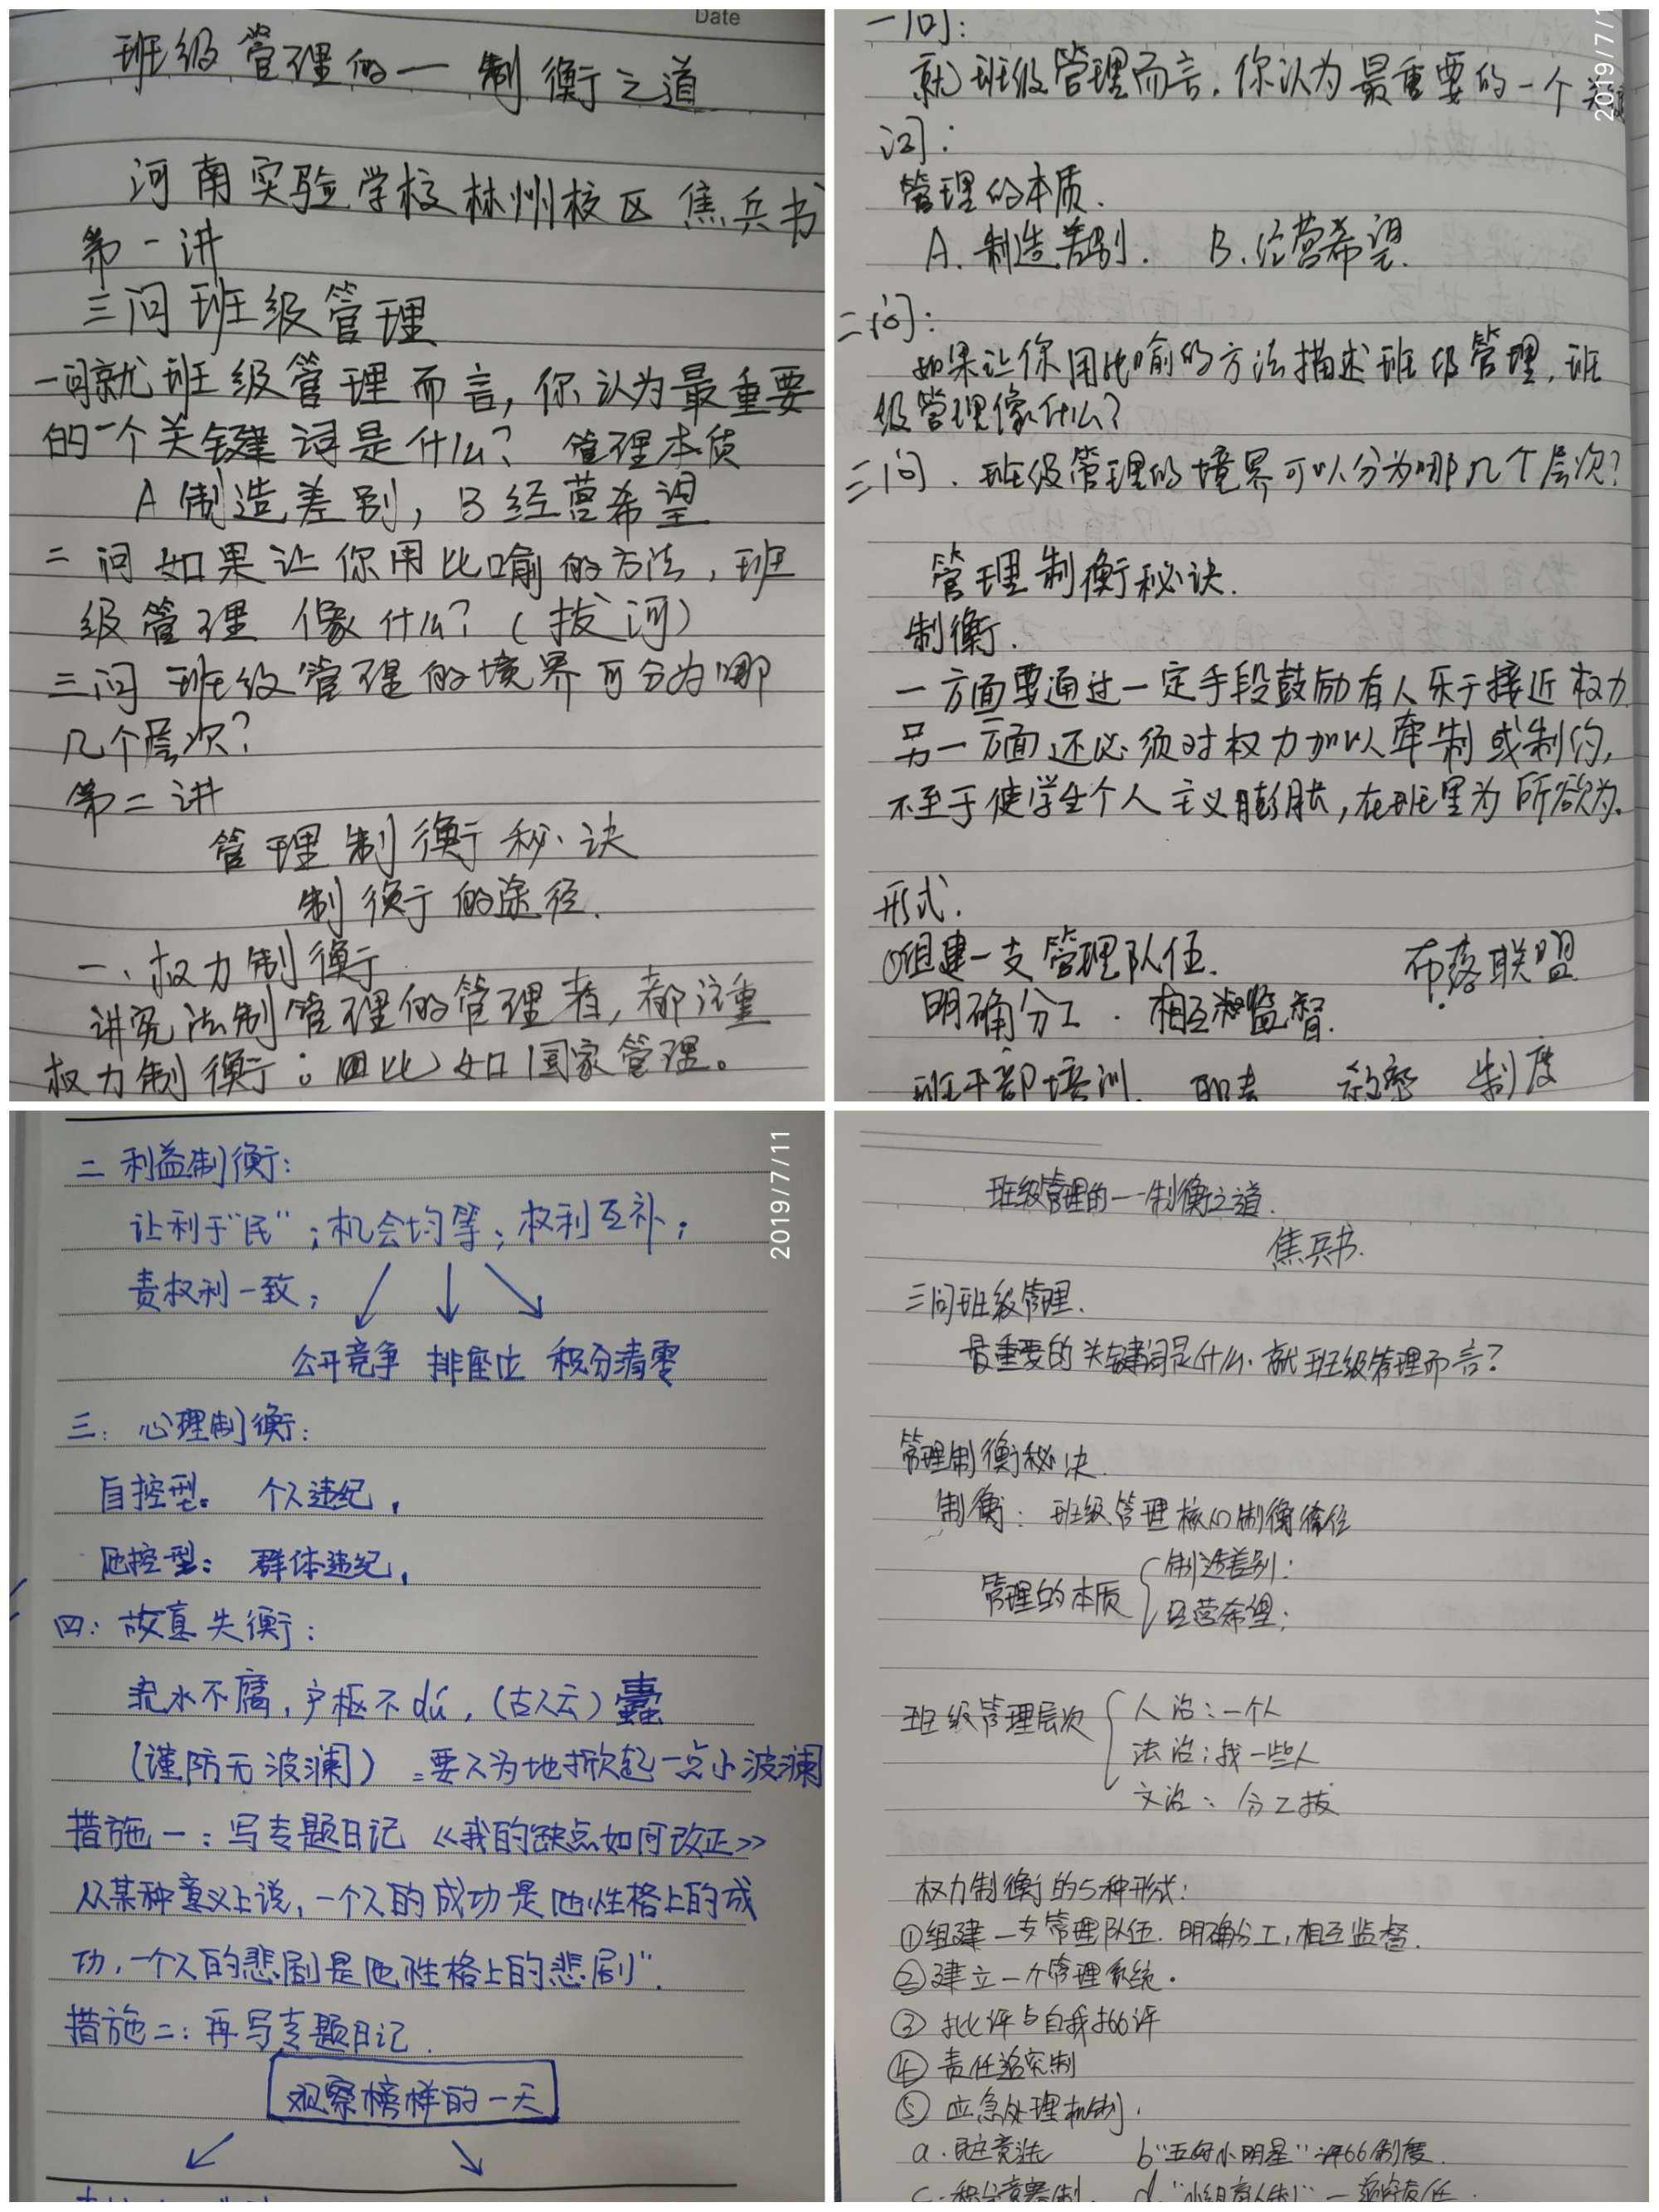 Date
班级管理的一制衡之道
河南实验学校林州校区 焦兵书
第一讲
三问班级管理
一问就班级管理而言,你认为最重要
的一个关键词是什么? 管理本质
A制造差别, B经营希望
二问如果让你用比喻的方法,班
级管理像什么?(拔河)
三问班级管理的境界可分为哪
几个层次?
第二讲
管理制衡秘诀
制衡的途径.
一、权力制衡
讲究法制管理的管理者,都注重
权力制衡;比如国家管理。
一问:
就班级管理而言.你认为最重要的一个关
词:
管理的本质.
A.制造差别. B.经营希望.
二问:
如果让你用比喻的方法描述班级管理,班
级管理像什么?
三问.班级管理的境界可以分为哪几个层次?
管理制衡秘诀.
制衡.
一方面要通过一定手段鼓励有人乐于接近权力
另一方面还必须对权力加以牵制或制约,
不至于使学生个人主义膨胀,在班里为所欲为.
形式.
①组建一支管理队伍. 布落联盟
明确分工.相互监督.
班干部培训. 职责 制度
2019/7/1
二 利益制衡:
让利于"民";机会均等;权利互补;
责权利一致;
公开竞争 排座位 积分清零
三:心理制衡:
自控型。 个人违纪,
他控型: 群体违纪,
四:故意失衡:
流水不腐,户枢不dú,(古人云)蠹
(谨防无波澜)=要人为地掀起一点小波澜
措施一:写专题日记《我的缺点如何改正》
从某种意义上说,一个人的成功是他性格上的成
功,一个人的悲剧是他性格上的悲剧".
措施二:再写专题日记.
观察榜样的一天
2019/7/11
班级管理的一一制衡之道.
焦兵书.
三问班级管理.
最重要的关键词是什么.就班级管理而言?
管理制衡秘决.
制衡:班级管理核心制衡
管理的本质 制造差别:
经营希望;
班级管理层次 人治:一个人
法治:找一些人
文治:分工拔
权力制衡的5种形式:
①组建一支管理队伍.明确分工,相互监督.
②建立一个管理系统.
③批评与自我批评
④责任追究制
⑤应急处理机制.
a.民主竞选 b"五好小明星"评比制度.
c.积分竞赛制. d."小组育人制"一